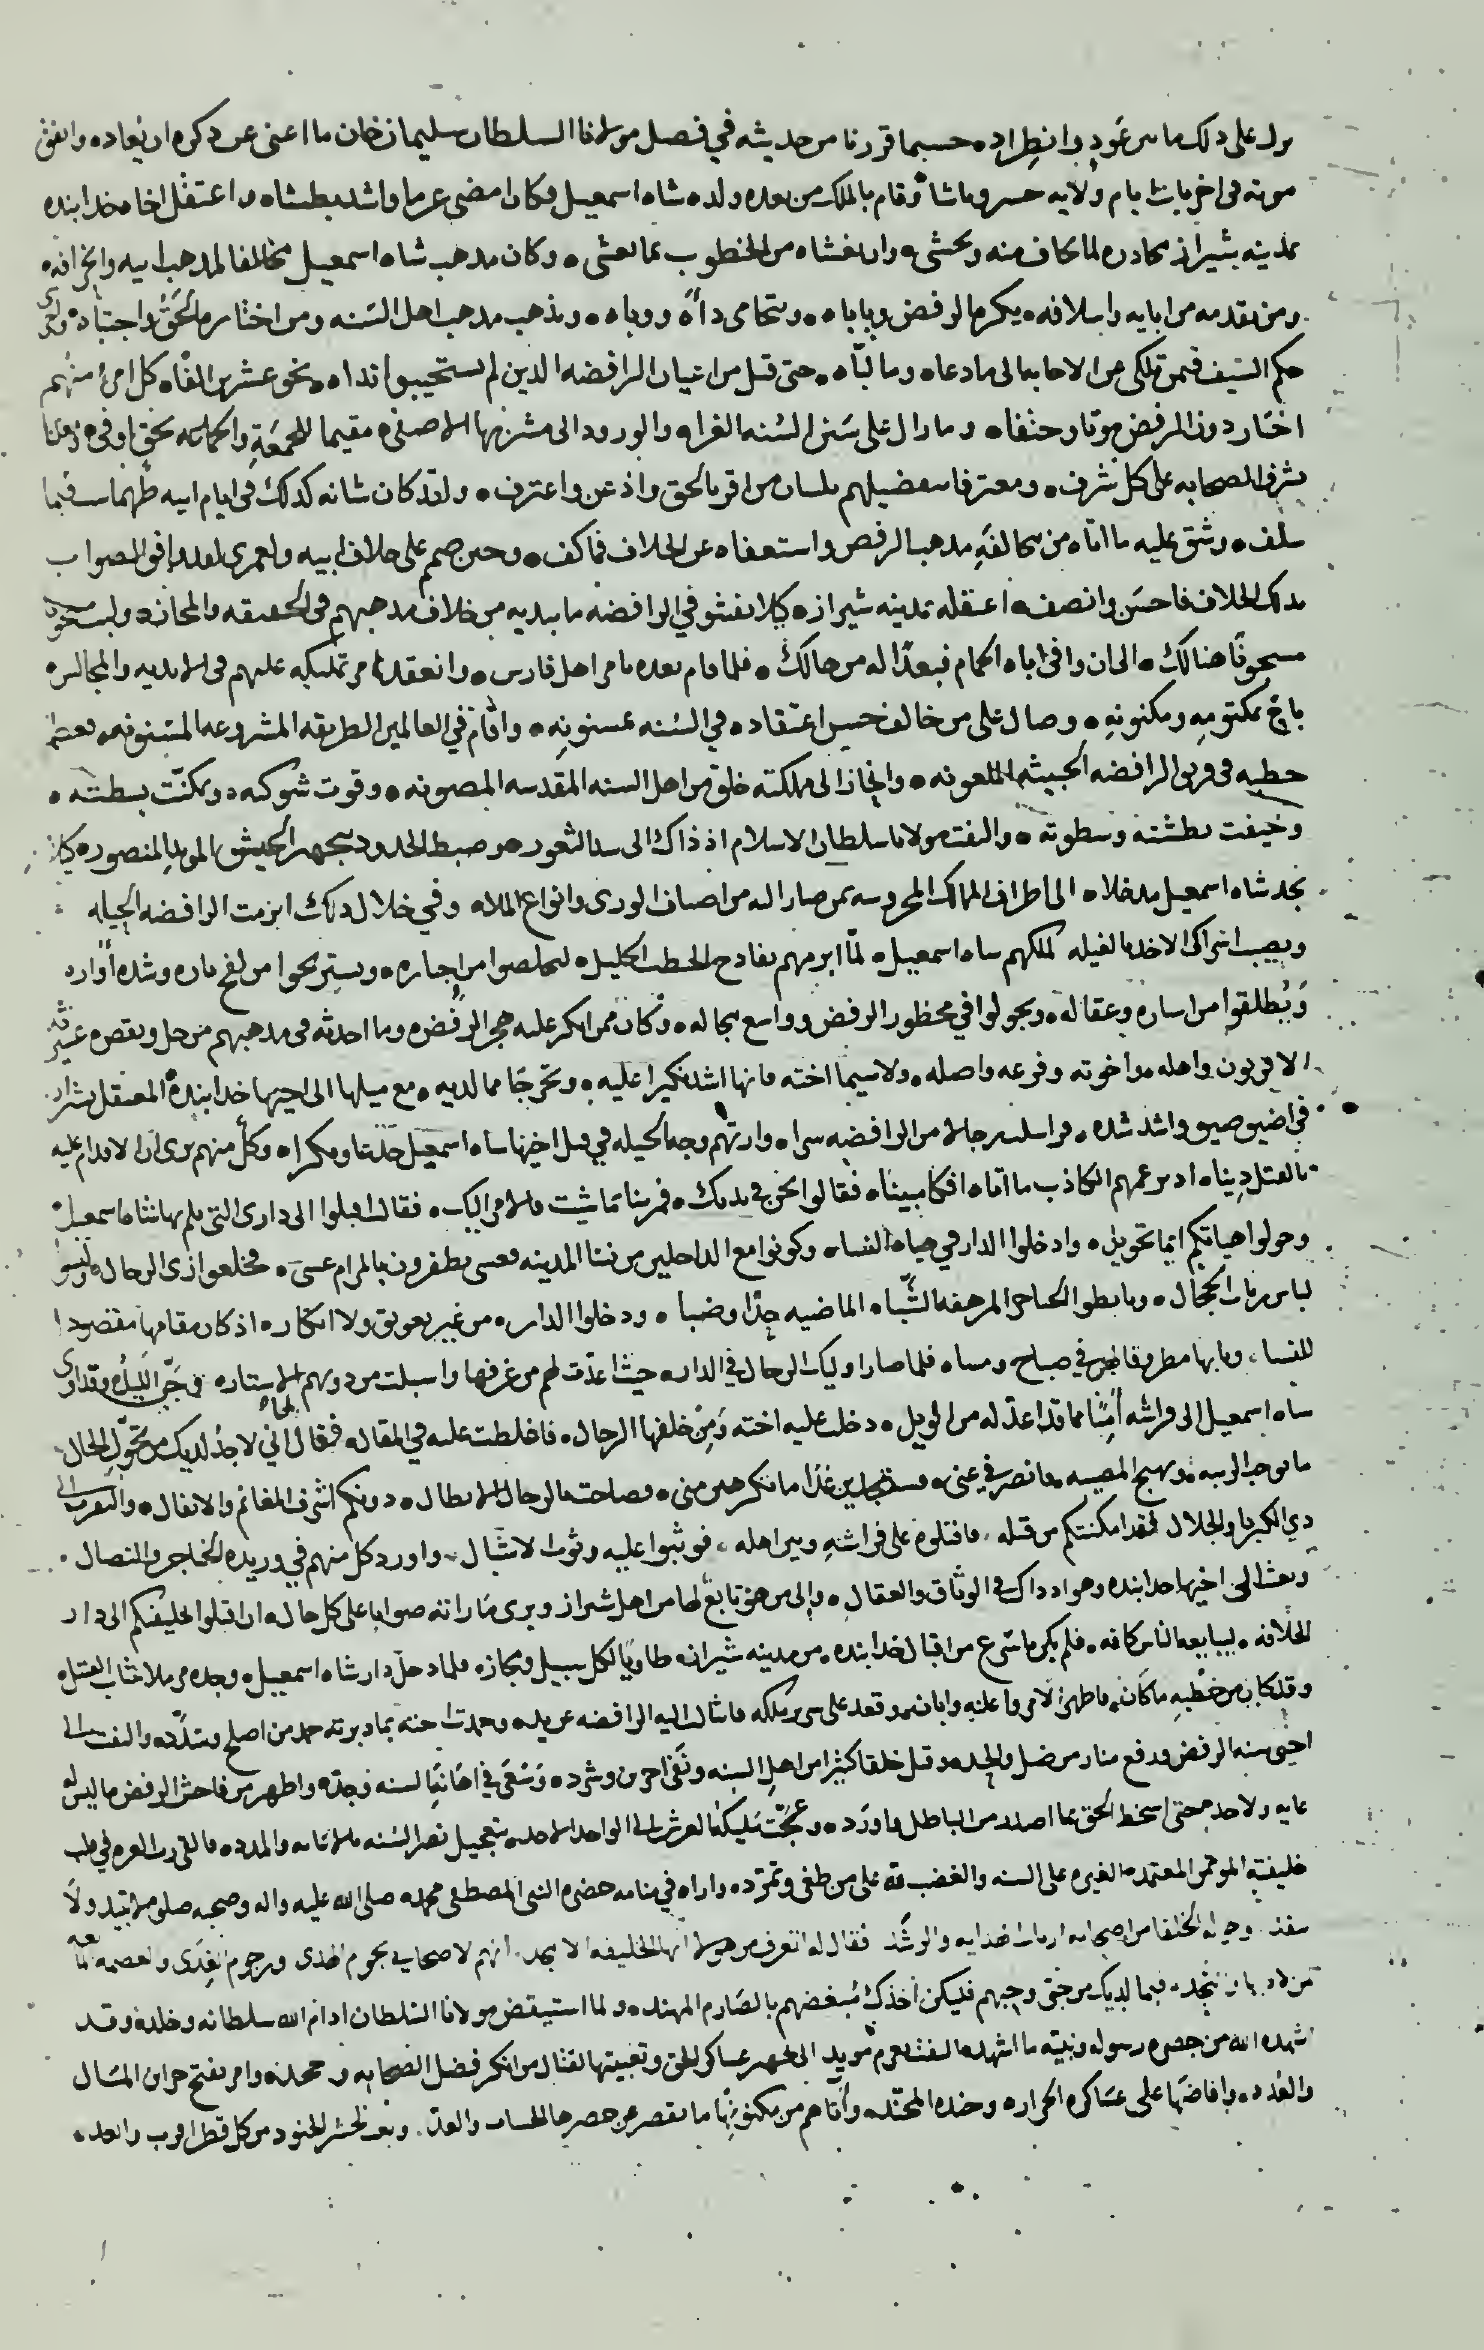 على ذلك ما من عود وانطراد ه حسبما قررنا من حديثه في فصل مولانا السلطان سليمان خان ما اغنى عن ذكره ان نعاده واتفق
موته في اخريات ايام ولايه حسرو باشا وقام بالملك من بعده ولده شاه اسمعيل وكان امضى عزما واشد بطشاه واعتقل اخاه خدابنده
بمدينه شيراز يحادره لما يخاف منه ويخشى ه وان يغشاه من الخطوب بما يغشى ه وكان مدهب شاه اسمعيل مخالفا لمدهب ابيه وانحرافه
ومن تقدمه من ابايه واسلافه ه يكره الرفض وياباه ه ويتحامى داه ووباه ه ويذهب مدهب اهل السنه ومن اختاره الحق واجتباه
حكم السيف فيمن تلكى عن الاجابه الى ما دعاه وما لباه ه حتى قتل من اعيان الرافضه الدين لم يستجيبوا نداه ه نحو عشرين الفاه كل امرئ منهم
اختار دون الرفض موتا وحتفاه وما زال على سنن السنه الغراه والورود الى مشربها الاصفى ه مقيما للجمعة والجماعه بحق اوفى ه
بشرف الصحابه على كل شرف ه ومعترفا بتفضيلهم بلسان من اقر بالحق واذعن واعترف ه ولقد كان شانه كدلك في ايام ابيه طهماسب فيما
سلف ه وشق عليه ما اتاه من مخالفة مدهب الرفض واستعفاه عن الخلاف فما كف ه وحين صمم على خلاف ابيه ولعمري لقد وافق الصواب
بدلك الخلاف فاحسن وانصف ه اعتقله بمدينه شيراز ه كيلا يفشو في الرافضه ما يبديه من خلاف مدهبهم في الحقيقه والمجاز ه
مسجونا هنالك ه الى ان وافى اباه الحمام فبعدا له من هالك ه فلما قام بعده بامر اهل فارس ه وانعقد امر تمليكه عليهم في الانديه والمجالس ه
باح بمكتومه ومكنونه ه وصال على من خالف حسن اعتقاده في السنه بمسنونه ه واقام في العالمين الطريقه المشروعه المسنونه ه فعظم
خطبه في فريق الرافضه الخبيثه الملعونه ه وانحاز الى مملكته خلق من اهل السنه المقدسه المصونه ه وقوت شوكته ه وتمكنت بسطته ه
وخيفت بطشته وسطوته ه والتفت مولانا سلطان الاسلام اذ ذاك الى سد الثغور ه وضبط الحدود بتجهيز الجيش المويد المنصور ه كيلا
يجد شاه اسمعيل مدخلاه الى اطراف الممالك المحروسه بمن صار اليه من اصناف الورى وانواع الملاه وفي خلال دلك ابرمت الرافضه الحيله
ونصبت اشراك الاخد والغيله لملكهم شاه اسمعيل ه لما ابرمهم بفادح الخطب الجليل ه ليخلصوا من اجباره ه ويستريحوا من لفح ناره وشده اواره
ويطلقوا من اساره وعقاله ه ويجولوا في محظور الرفض وواسع مجاله ه وكان ممن انكر عليه هجر الرفض ه وما احدثه في مدهبهم من حل ونقض ه عشيرته
الاقربون واهله ه واخوته وفرعه واصله ه ولاسيما اخته فانها اشد نكيرا عليه ه وتحرجا مما لديه ه مع ميلها الى اخيها خدابنده المعتقل بشيراز
في اضيق ضيق واشد شده ه فراسلت رجالا من الرافضه سرا ه وارتهم وجه الحيله في قتل اخيها شاه اسمعيل خدعا ومكرا ه وكل منهم يرى ان الاقدام عليه
بالقتل ديناه اد بزعمهم الكاذب ما اتاه افكا مبيناه فقالوا نحن في يديك ه فمرينا بما شيت فالامر اليك ه فقالت اقبلوا الى داري التي يلم بها شاه اسمعيل
وحولوا هياتكم ايما تحويل ه وادخلوا الدار في هياه النساه وكونوا مع الداخلين من نسا المدينه فعسى تظفرون بالمرام عسى ه فخلعوا زي الرجال ولبسوا
لباس ربات الحجال ه وتابطوا الخناجر المرهفه الشباه الماضيه حدا وضبا ه ودخلوا الدار ه من غير تعويق ولا انكار ه اذ كان مقامها مقصودا
للنسا ه وبابها مطروقا لهن في صباح ومسا ه فلما صار اوليك الرجال في الدار ه حيث اعدت لهم من غرفها واسبلت من دونهم الاستار ه وجن الليل ه وقد اوى
شاه اسمعيل الى فراشه امنا مما قد اعد له من الويل ه دخلت عليه اخته ومن خلفها الرجال ه فاغلظت عليه في المقاله فقال اني لاجد لديك من تحول الحال
ما يوجب الريبه ه ويهيج المصيبه ه فانصرفي عني ه فستجدين غدا ما تكرهين مني ه فصاحت بالرجال الابطال ه دونكم اشرف المغانم والانفال ه والتقرب الى
دي الكبريا والجلال فقد امكنتكم من قتله ه فاقتلوه على فراشه وبين اهله ه فوثبوا عليه وثوب الاشبال ه واورد كل منهم في وريده الخناجر والنصال ه
وبعث الى اخيها خدابنده وهو اد داك في الوثاق والعقال ه والى من هو تابع لها من اهل شيراز ويرى ما راته صوابا على كل حال ه ان اقبلوا بخليفتكم الى دار
الخلافه ه ليبايعه الناس كافه ه فلم يكن باسرع من اقبال خدابنده ه من مدينه شيراز ه طاويا لكل سبيل ومجاز ه فلما دخل دار شاه اسمعيل ه وجده
وقد كان من خطبه ما كان ه فاظهر الامر واعلنه وابان ه وقعد على سرير ملكه فانثالت اليه الرافضه ه وحمدت اخته بما دبرته حمد من اصلح وسدده والتفت الى
احيى سنه الرفض ورفع منار من ضل والحد ه وقتل خلقا كثيرا من اهل السنه ونفى اخرين وشرده وسعى في اهانة السنه وجده واظهر من فاحش الرفض ما ليس له
غايه ولا حد ه حتى اسخط الحق بما اصدر من الباطل واورد ه وعجت مليكه العرش الى الواحد الاحد ه بتعجيل نصر السنه والمدد ه فالقى رب العزه في قلب
خليفته الموتمن المعتمد ه الغيره على السنه والغضب لله على من طغى وتمرد ه واراه في منامه حضره النبي المصطفى محمد ه صلى الله عليه واله وصحبه صلوه لا تبيد ولا
تنفد ه وحوله الخلفا من اصحابه ارباب الهدايه والرشد ه فقال له اتعرف من هولا ايها الخليفه الامجد ه انهم لاصحابي نجوم الهدى ورجوم العدى
فيما لديك من حبي وحبهم فليكن اخذك مبغضهم بالصارم المهند ه ولما استيقض مولانا السلطان ادام الله سلطانه وخلده وقد
اشهده الله من حضره رسوله ونبيه ما اشهده التفت بعزم مويد الى تجهيز عساكر الحق وتعبيتها لقتال من انكر فضل الصحابه وجحده وامر بفتح خزاين المال
والعدد ه وافاضها على عساكره الجراره وجنده المجنده واتاهم من مكنونها ما يقصر عن حصره الحساب والعد ه وبعث لحشر الجنود من كل قطر اقرب وابعد ه